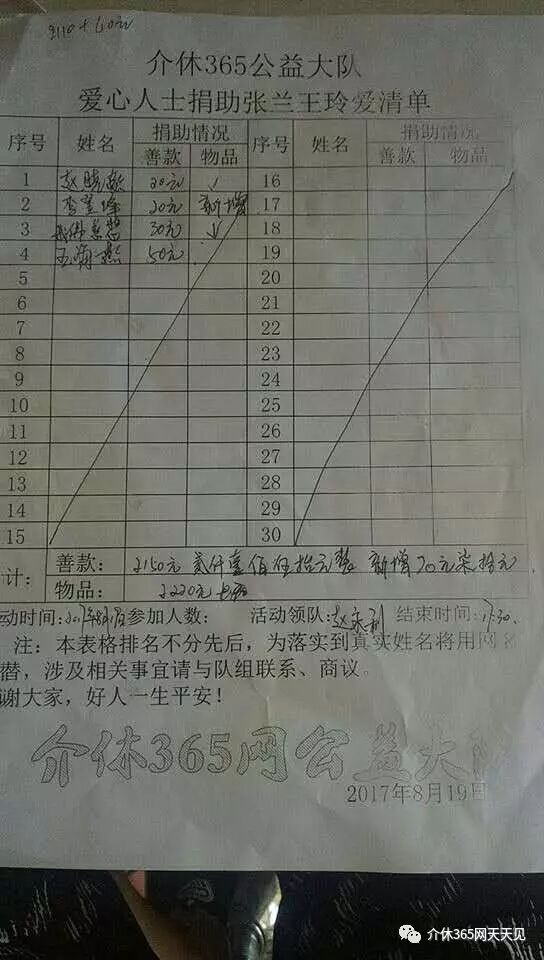 2110+60元
介休365公益大队
爱心人士捐助张兰王玲爱清单
序号 姓名 捐助情况 序号 姓名 捐助情况
善款 物品 善款 物品
1 赵 20元 16
2 20元 新增 17
3 30元 18
4 王 50元 19
5 20
6 21
7 22
8 23
9 24
10 25
11 26
12 27
13 28
14 29
15 30
计: 善款: 2150元 贰仟壹佰伍拾元整 新增70元柒拾元
物品: 2220元
动时间: 参加人数: 活动领队: 赵 结束时间: 17:30.
注:本表格排名不分先后,为落实到真实姓名将用网名
替,涉及相关事宜请与队组联系、商议。
谢大家,好人一生平安!
介休365网公益大队
2017年8月19日
介休365网天天见